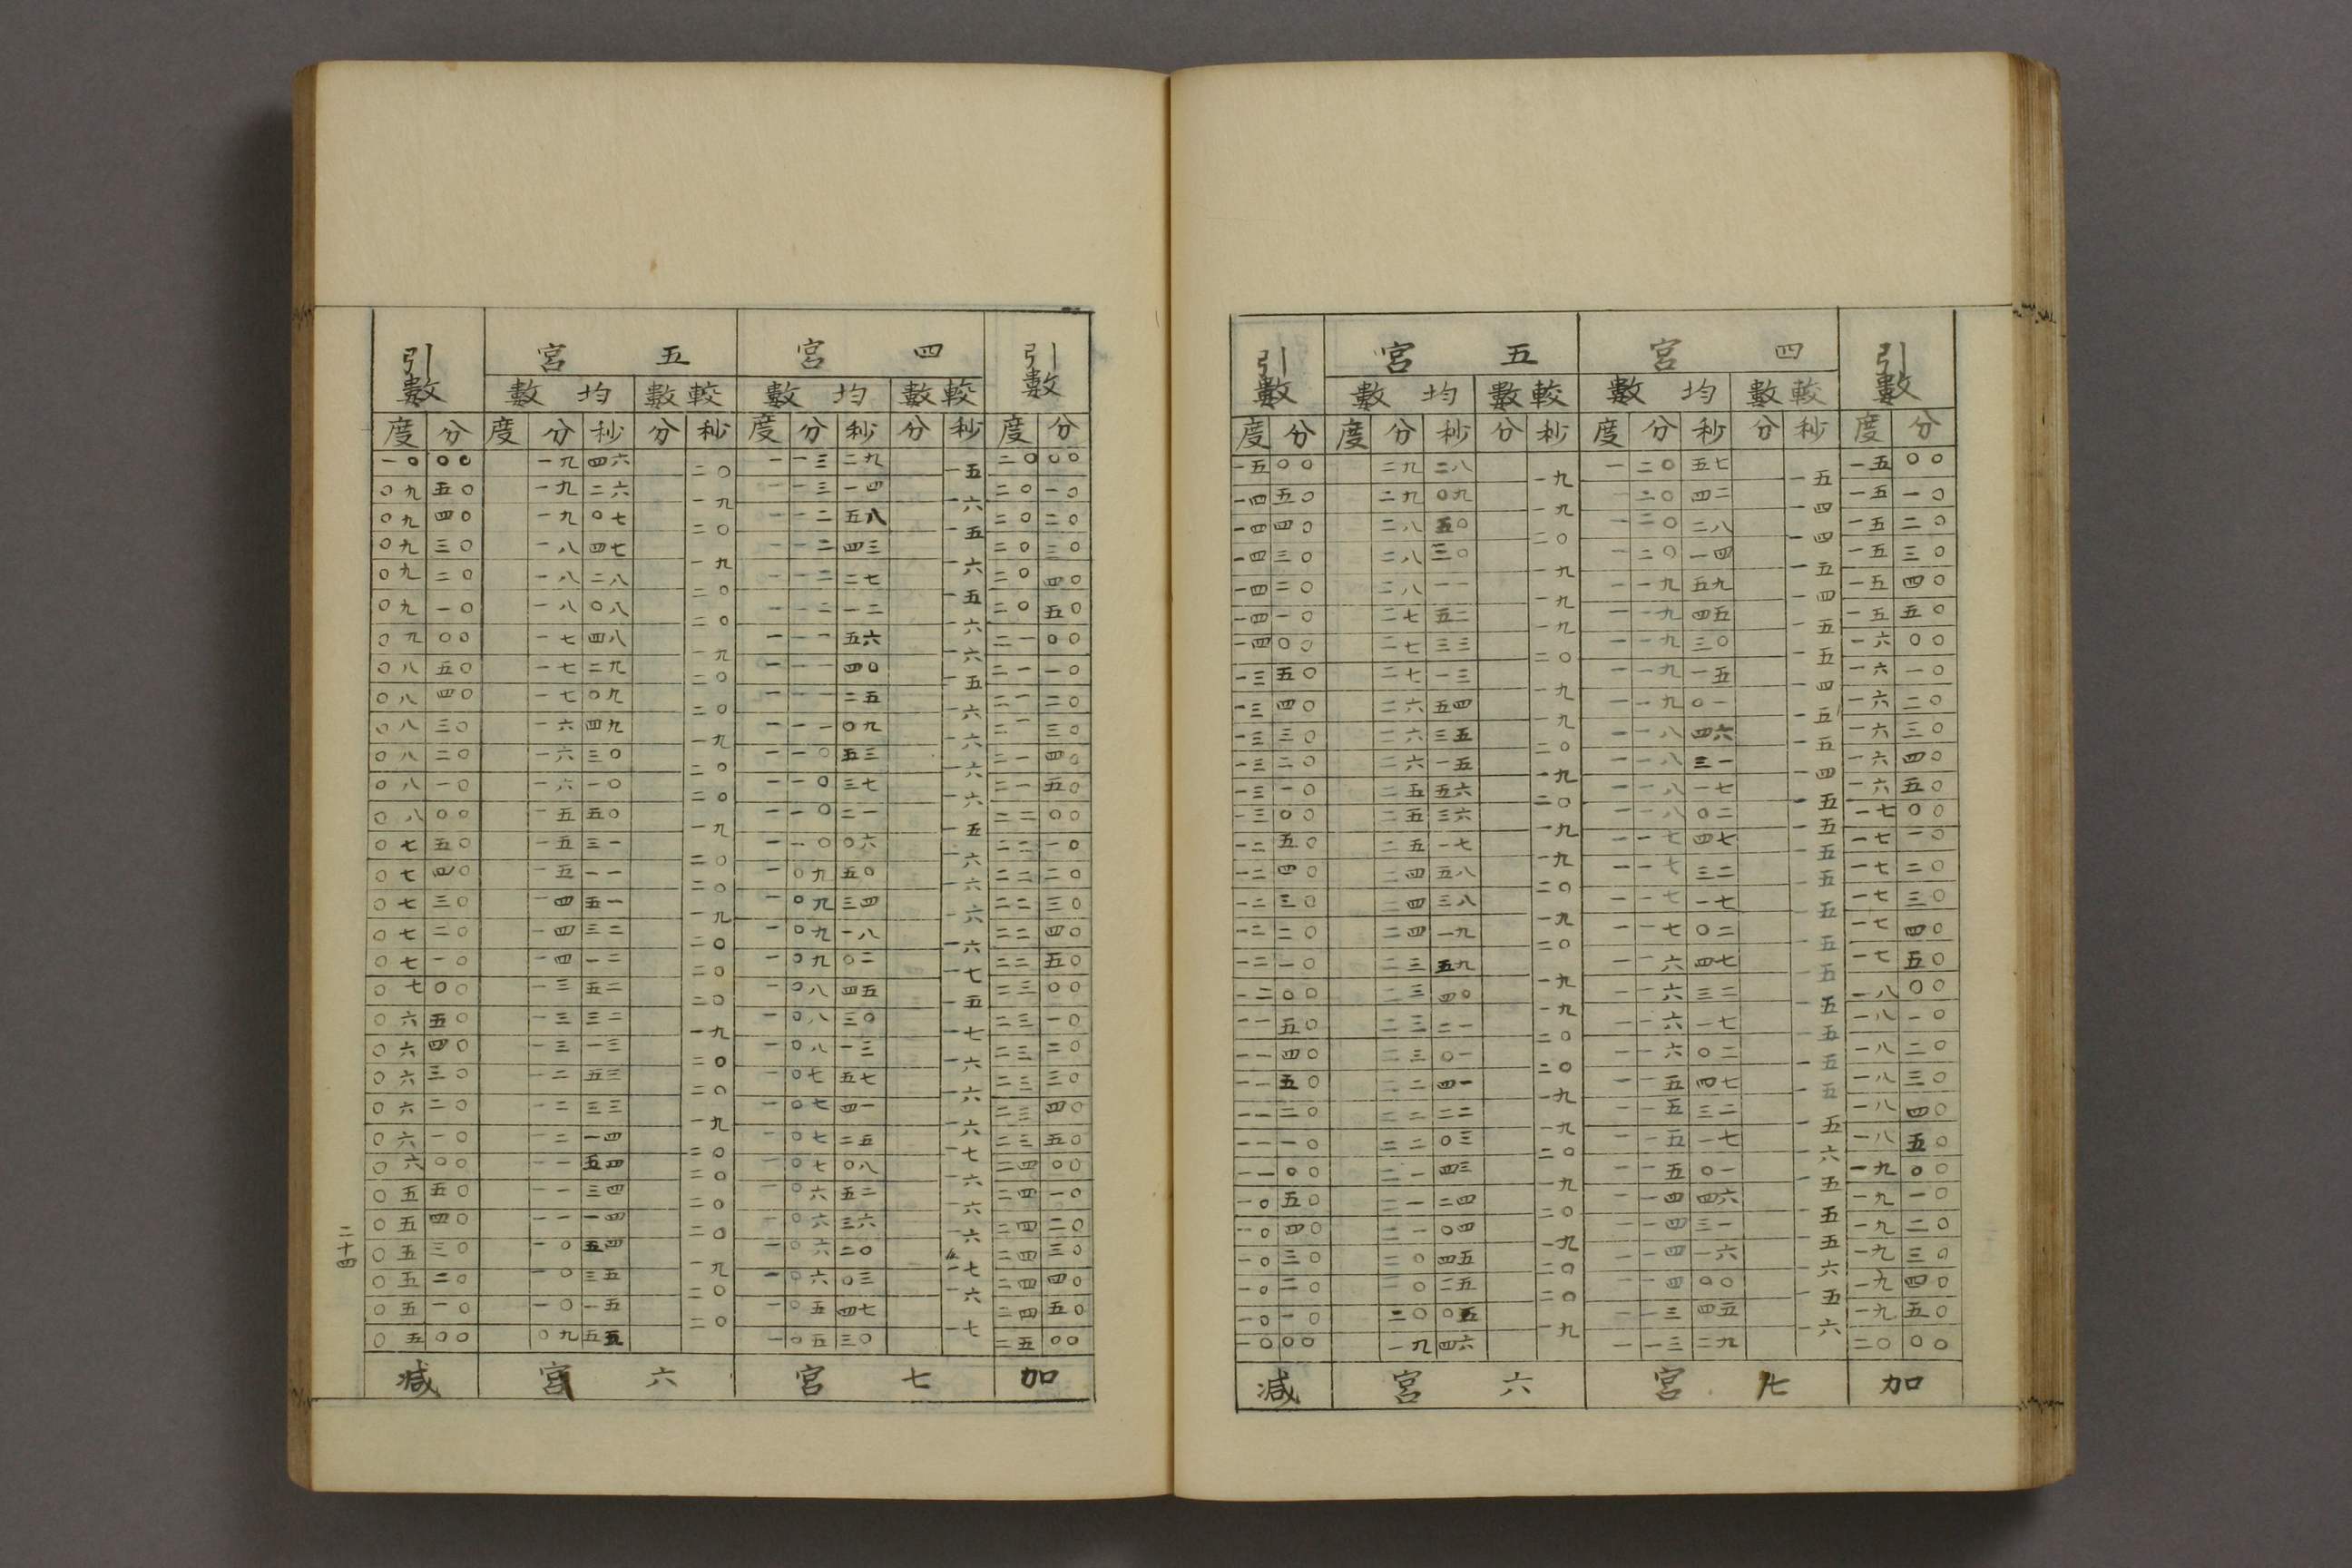 引數 宮五 宮四 引數
數均 數較 數均 數較
度 分 度 分 秒 分 秒 度 分 秒 分 秒 度 分
一五 〇〇 二九 二八 一九 一 二〇 五七 一五 一五 〇〇
一四 五〇 二九 〇九 一九 一 二〇 四二 一四 一五 一〇
一四 四〇 二八 五〇 二〇 一 二〇 二八 一四 一五 二〇
一四 三〇 二八 三〇 一九 一 二〇 一四 一五 一五 三〇
一四 二〇 二八 一一 一九 一 一九 五九 一四 一五 四〇
一四 一〇 二七 五二 一九 一 一九 四五 一五 一五 五〇
一四 〇〇 二七 三三 二〇 一 一九 三〇 一五 一六 〇〇
一三 五〇 二七 一三 一九 一 一九 一五 一四 一六 一〇
一三 四〇 二六 五四 一九 一 一九 〇一 一五 一六 二〇
一三 三〇 二六 三五 二〇 一 一八 四六 一五 一六 三〇
一三 二〇 二六 一五 一九 一 一八 三一 一四 一六 四〇
一三 一〇 二五 五六 二〇 一 一八 一七 一五 一六 五〇
一三 〇〇 二五 三六 一九 一 一八 〇二 一五 一七 〇〇
一二 五〇 二五 一七 一九 一 一七 四七 一五 一七 一〇
一二 四〇 二四 五八 二〇 一 一七 三二 一五 一七 二〇
一二 三〇 二四 三八 一九 一 一七 一七 一五 一七 三〇
一二 二〇 二四 一九 二〇 一 一七 〇二 一五 一七 四〇
一二 一〇 二三 五九 一九 一 一六 四七 一五 一七 五〇
一二 〇〇 二三 四〇 一九 一 一六 三二 一五 一八 〇〇
一一 五〇 二三 二一 二〇 一 一六 一七 一五 一八 一〇
一一 四〇 二三 〇一 二〇 一 一六 〇二 一五 一八 二〇
一一 五〇 二二 四一 一九 一 一五 四七 一五 一八 三〇
一一 二〇 二二 二二 一九 一 一五 三二 一五 一八 四〇
一一 一〇 二二 〇三 二〇 一 一五 一七 一六 一八 五〇
一一 〇〇 二一 四三 一九 一 一五 〇一 一五 一九 〇〇
一〇 五〇 二一 二四 二〇 一 一四 四六 一五 一九 一〇
一〇 四〇 二一 〇四 一九 一 一四 三一 一五 一九 二〇
一〇 三〇 二〇 四五 二〇 一 一四 一六 一六 一九 三〇
一〇 二〇 二〇 二五 二〇 一 一四 〇〇 一五 一九 四〇
一〇 一〇 二〇 〇五 一九 一 一三 四五 一六 一九 五〇
一〇 〇〇 一九 四六 一 一三 二九 二〇 〇〇
減 宮六 宮七 加
引數 宮五 宮四 引數
數均 數較 數均 數較
度 分 度 分 秒 分 秒 度 分 秒 分 秒 度 分
一〇 〇〇 一九 四六 二〇 一 一三 二九 一五 二〇 〇〇
〇九 五〇 一九 二六 一九 一 一三 一四 一六 二〇 一〇
〇九 四〇 一九 〇七 二〇 一 一二 五八 一五 二〇 二〇
〇九 三〇 一八 四七 一九 一 一二 四三 一六 二〇 三〇
〇九 二〇 一八 二八 二〇 一 一二 二七 一五 二〇 四〇
〇九 一〇 一八 〇八 二〇 一 一二 一二 一六 二〇 五〇
〇九 〇〇 一七 四八 一九 一 一一 五六 一六 二一 〇〇
〇八 五〇 一七 二九 二〇 一 一一 四〇 一五 二一 一〇
〇八 四〇 一七 〇九 二〇 一 一一 二五 一六 二一 二〇
〇八 三〇 一六 四九 一九 一 一一 〇九 一六 二一 三〇
〇八 二〇 一六 三〇 二〇 一 一〇 五三 一六 二一 四〇
〇八 一〇 一六 一〇 二〇 一 一〇 三七 一六 二一 五〇
〇八 〇〇 一五 五〇 一九 一 一〇 二一 一五 二二 〇〇
〇七 五〇 一五 三一 二〇 一 一〇 〇六 一六 二二 一〇
〇七 四〇 一五 一一 二〇 一 〇九 五〇 一六 二二 二〇
〇七 三〇 一四 五一 一九 一 〇九 三四 一六 二二 三〇
〇七 二〇 一四 三二 二〇 一 〇九 一八 一六 二二 四〇
〇七 一〇 一四 一二 二〇 一 〇九 〇二 一七 二二 五〇
〇七 〇〇 一三 五二 二〇 一 〇八 四五 一五 二三 〇〇
〇六 五〇 一三 三二 一九 一 〇八 三〇 一七 二三 一〇
〇六 四〇 一三 一三 二〇 一 〇八 一三 一六 二三 二〇
〇六 三〇 一二 五三 二〇 一 〇七 五七 一六 二三 三〇
〇六 二〇 一二 三三 一九 一 〇七 四一 一六 二三 四〇
〇六 一〇 一二 一四 二〇 一 〇七 二五 一七 二三 五〇
〇六 〇〇 一一 五四 二〇 一 〇七 〇八 一六 二四 〇〇
〇五 五〇 一一 三四 二〇 一 〇六 五二 一六 二四 一〇
〇五 四〇 一一 一四 二〇 一 〇六 三六 一六 二四 二〇
〇五 三〇 一〇 五四 一九 一 〇六 二〇 一七 二四 三〇
〇五 二〇 一〇 三五 二〇 一 〇六 〇三 一六 二四 四〇
〇五 一〇 一〇 一五 二〇 一 〇五 四七 一七 二四 五〇
〇五 〇〇 〇九 五五 一 〇五 三〇 二五 〇〇
減 宮六 宮七 加
二十四